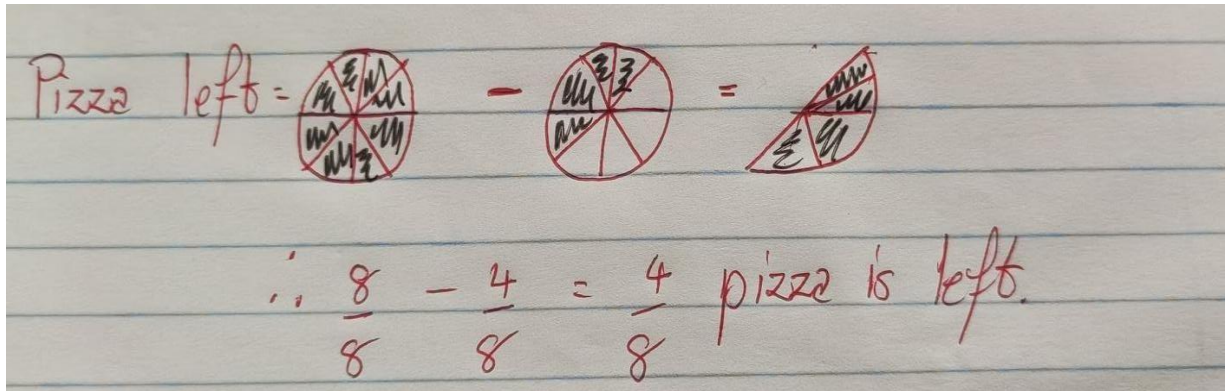 Pizza left = - =
∴ 8/8 - 4/8 = 4/8 pizza is left.